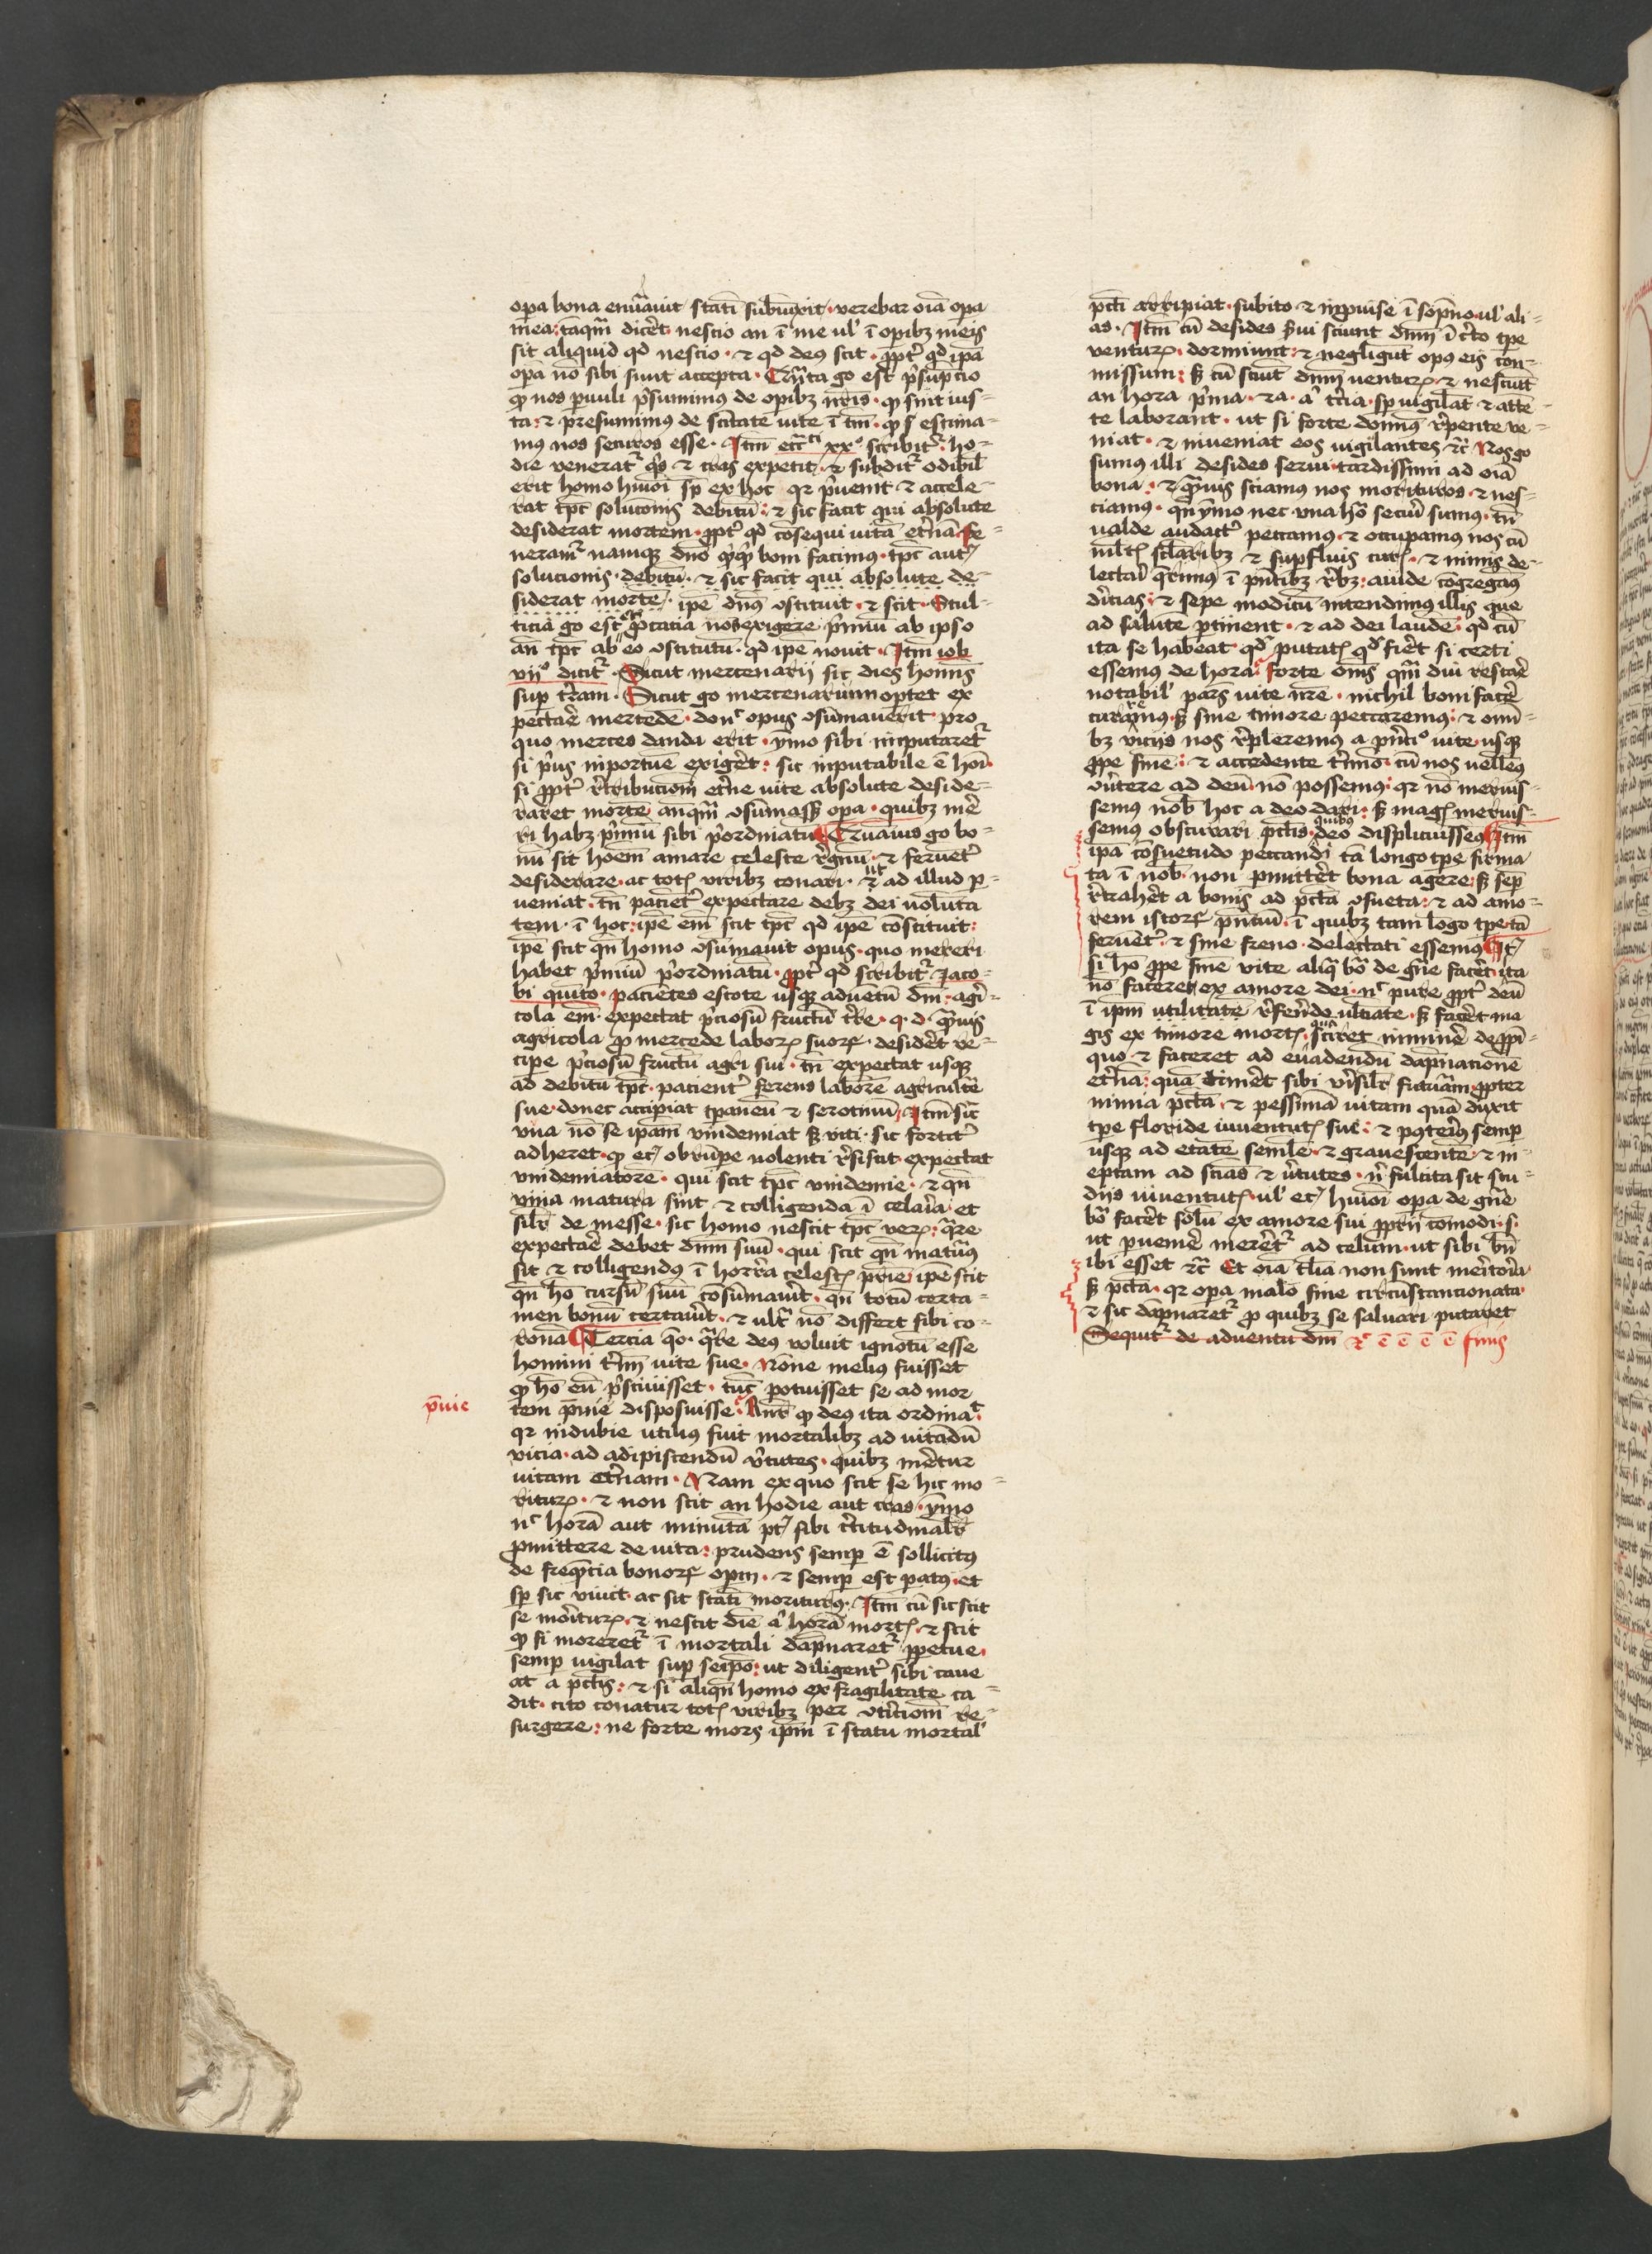 opa bona enu̅auit stati̅ subiu̅xit · verebar oi̅a opa
mea: ta̅qm̅ dic̅et · nescio an i̅ me ul' i̅ opibz meis
sit aliquid qd nescio · ⁊ qd deus scit · ppt' qd ipa̅
opa no̅ sibi sunt accepta · est p̅supcio
nos puuli p̅sumimus de opibz nr̅is · sint ius-
ta: ⁊ presumimus de sc̅itate uite i̅ tm̅ · estima-
mus nos securos esse · Itm̅ xx° scribit' · ho-
die ⁊ cras expetit · ⁊ subdit' odibil'
erit homo hui̅oi sp̅ ex hoc qr p̅uenit ⁊ accele-
rat tp̅s soluc̅onis debitu̅: ⁊ sic facit qui absolute
desiderat mortem · ppt' qd co̅sequi uita̅ et̅na̅ · Fe-
neram' namqz dn̅o boni facimus · tp̅s aut
solucionis · debitu̅ · ⁊ sic facit qui absolute de-
siderat morte̅ · ipe̅ dn̅s ostituit · ⁊ scit · Stul-
ticia go est nos exigere p̅miu̅ ab ipso
an̅ tp̅s ab eo ostitutu̅ · qd ipe̅ nouit · Itm̅ iob
vij° dicit' · Sicut mercenarij sic dies homis
sup t̅ram · Sicut go mercenarium optet ex
pecta̅e mercede̅ · don' opus osu̅mauerit · pro
quo merces danda erit · ymo sibi inputaret'
si p̅us inportu̅e exig̅et: sic inputabile e̅ hoi̅ ·
si ppt' r̅tribuciom̅ et̅ne uite absolute deside-
raret morte̅ anqm̅ osu̅mass opa · quibz me̅
ri habz p̅miu̅ sibi p̅ordinatu̅ go bo-
nu̅ sit hoem̅ amare celeste r̅gnu̅ · ⁊ feruent'
desiderare · ac viribz conari · ⁊ ad illud p-
ueniat · tn̅ pacie̅t' expectare debz dei uolu̅ta
tem · i̅ hoc: ipe̅ em̅ scit tp̅s qd ipe̅ co̅stituit:
ipe̅ scit qn̅ homo osu̅mauit opus · quo mereri
habet p̅miu̅ p̅ordinatu̅ · ppt' qd scribit' Jaco-
bi qui̅to · pacie̅tes estote usqz aduentu̅ dn̅i · agri-
cola em̅ · expectat p̅ciosu̅ fructu̅ t̅re · q · d · qu̅uis
agricola p mercede labor suor · desider̅t re-
cipe p̅ciosu̅ fructu̅ agri sui · tn̅ expectat usqz
ad debitu̅ tp̅s · pacient' ferens labore̅ agricult̅e
sue · donec accipiat tp̅aneu̅ ⁊ serotinu̅ · Itm̅ sic̅
vua no̅ se ipam̅ vindemiat s viti · sic fortit'
adheret · obru̅pe uolenti r̅sistit · expectat
vindemiatore̅ · qui scit tp̅s vindemie · ⁊ qn̅
vina matura sint ⁊ colligenda i̅ et
silr̅ de messe · sic homo nescit tp̅s · qr̅e
expecta̅e debet dn̅m suu̅ · qui scit qn̅ matu̅us
sit ⁊ colligendus i̅ horr̅a celest p̅rie · ipe̅ scit
qn̅ ho̅ cursu̅ suu̅ co̅su̅mau̅it · qn̅ totu̅ certa-
men bonu̅ certau̅it · ⁊ ult̅ no̅ differt sibi co-
rona̅ ¶ Tercia qo · qu̅re deus voluit ignotu̅ esse
homini t̅im̅ uite sue · None melius fuisset
ho̅ eu̅ p̅sciuisset · tu̅c potuisset se ad mor
p̅uie
tem p̅uie disposuisse · deus ita ordinat
qr indubie utilius fuit mortalibz ad uita̅du̅
vicia · ad adipiscendu̅ v̅tutes · quibz me̅tur
uitam et̅nam · Nam ex quo scit se hic mo-
ritur · ⁊ non scit an hodie aut cras · ymo
n' hora̅ aut minuta̅ pt sibi c̅titudinalr̅
pmittere de uita: prudens semp e̅ sollicitus
de freqn̅tia bonor opm · ⁊ semp est patus · et
sp̅ sic viuit · ac sit stati̅ moriturus · Itm̅ cu̅ sic scit
se moritur · ⁊ nescit die̅ a' hora̅ mort · ⁊ scit
si moreret' i̅ mortali da̅pnaret' ppetue ·
semp uigilat sup seipo̅: ut diligent' sibi caue
at a pct̅is: ⁊ si aliqn̅ homo ex fragilitate ca-
dit · cito conatur tot viribz per re-
surgere: ne forte mors ipm̅ i̅ statu mortal'
pct̅i arripiat · subito ⁊ inpuise i̅ so̅pno · ul' ali-
as · Itm̅ cu̅ desides s̅ui sciunt dn̅m i̅ c̅to tpe
ventur · dormiunt: ⁊ negligu̅t opus eis con-
missum: s cu̅ sciu̅t dn̅m ventur ⁊ nesciu̅t
an hora p̅ma · ⁊ a · a' t̅cia · sp̅ uigila̅t ⁊ atte̅-
te laborant · ut si forte domi̅us r̅pente ve-
niat · ⁊ inueniat eos uigilantes ⁊c̅ Nos go
sumus illi desides serui · tardissimi ad oi̅a
bona: ⁊ qu̅uis sciamus nos morituros · ⁊ nes-
ciamus · qn̅ ymo nec vna ho̅ secu̅i sumus · tn̅
ualde audact' peccamus · ⁊ occupamus nos cu̅
mlt sclaribz ⁊ supfluis cur · ⁊ nimis de-
lecta̅i qr̅imus i̅ pn̅tibz r̅bz: auide co̅gregam̅s
di̅cias: ⁊ sepe modicu̅ intendimus illis que
ad salute̅ ptinent · ⁊ ad dei laude̅: qd cu̅
ita se habeat · putat fi̅et si certi
essemus de hora: forte o̅nis diu resta̅e
notabil' pars uite nr̅e · nichil boni fac̅e
s sine timore peccaremus: ⁊ omi-
bz viciis nos r̅pleremus a p̅nci° uite usqz
ppe fine̅: ⁊ accedente t̅mio · cu̅ nos uellem̅s
v̅tere ad deu̅ · no̅ possemus: qr no̅ meruis-
semus nob̅ hoc a deo dari: s mag meruis-
semus obscurari pct̅is · quibus deo displicuissem̅s ¶ Itm̅
ipa̅ co̅suetudo peccandi ta̅ longo tpe firma
ta i̅ nob̅ · non pmitt̅et bona agere: s sep̅
r̅trah̅et a bonis ad pct̅a osueta: ⁊ ad amo-
rem istor pn̅tiu̅ · i̅ quibz tam lo̅go tpe ta̅
feruent' · ⁊ sine freno delectati essemus ¶ It
si ho̅ ppe fine̅ vite aliq̅ bo̅ de gn̅e fac̅et · ita
no̅ faceret ex amore dei · n' pure ppt' deu̅
i̅ ipm̅ utilitate̅ r̅ferendo · s fac̅et ma
gis ex timore mort ·
quo ⁊ faceret ad euadendu̅ da̅pnac̅ione̅
et̅na̅: qua̅ tim̅et sibi v̅isilr̅ futura̅m · ppter
nimia pct̅a · ⁊ pessima̅ uitam qua̅ duxit
tpe floride iuuentut sue: ⁊ semp
usqz ad etate̅ senile̅ · ⁊ grauescente̅ · ⁊ in-
eptam ad scia̅s ⁊ v̅tutes · n' fulcita sit stu-
diis iuuentut · ul' hui̅oi opa de gn̅e
bo̅ fac̅et solu̅ ex amore sui pprii co̅modi · s ·
ut pueni̅e mer̅et' ad celum · ut sibi bn̅
ibi esset ⁊c̅ Et oi̅a t̅lia non sunt me̅itoria
s pct̅a · qr opa malo fine circu̅stancionata ·
⁊ sic da̅pnaret' p quibz se saluari putaret
Sequit' de aduentu dn̅i ⁊c̅ e̅ e̅ e̅ e̅ finis